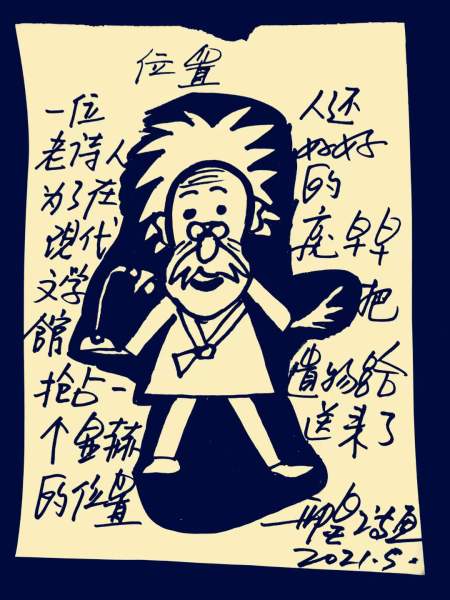 位置
一位
老诗人
为了在
現代
文学
館
抢占一
个显赫
的位置
人还
好好
的
竟早早
把
遺物給
送来了
诗画
2021.5.